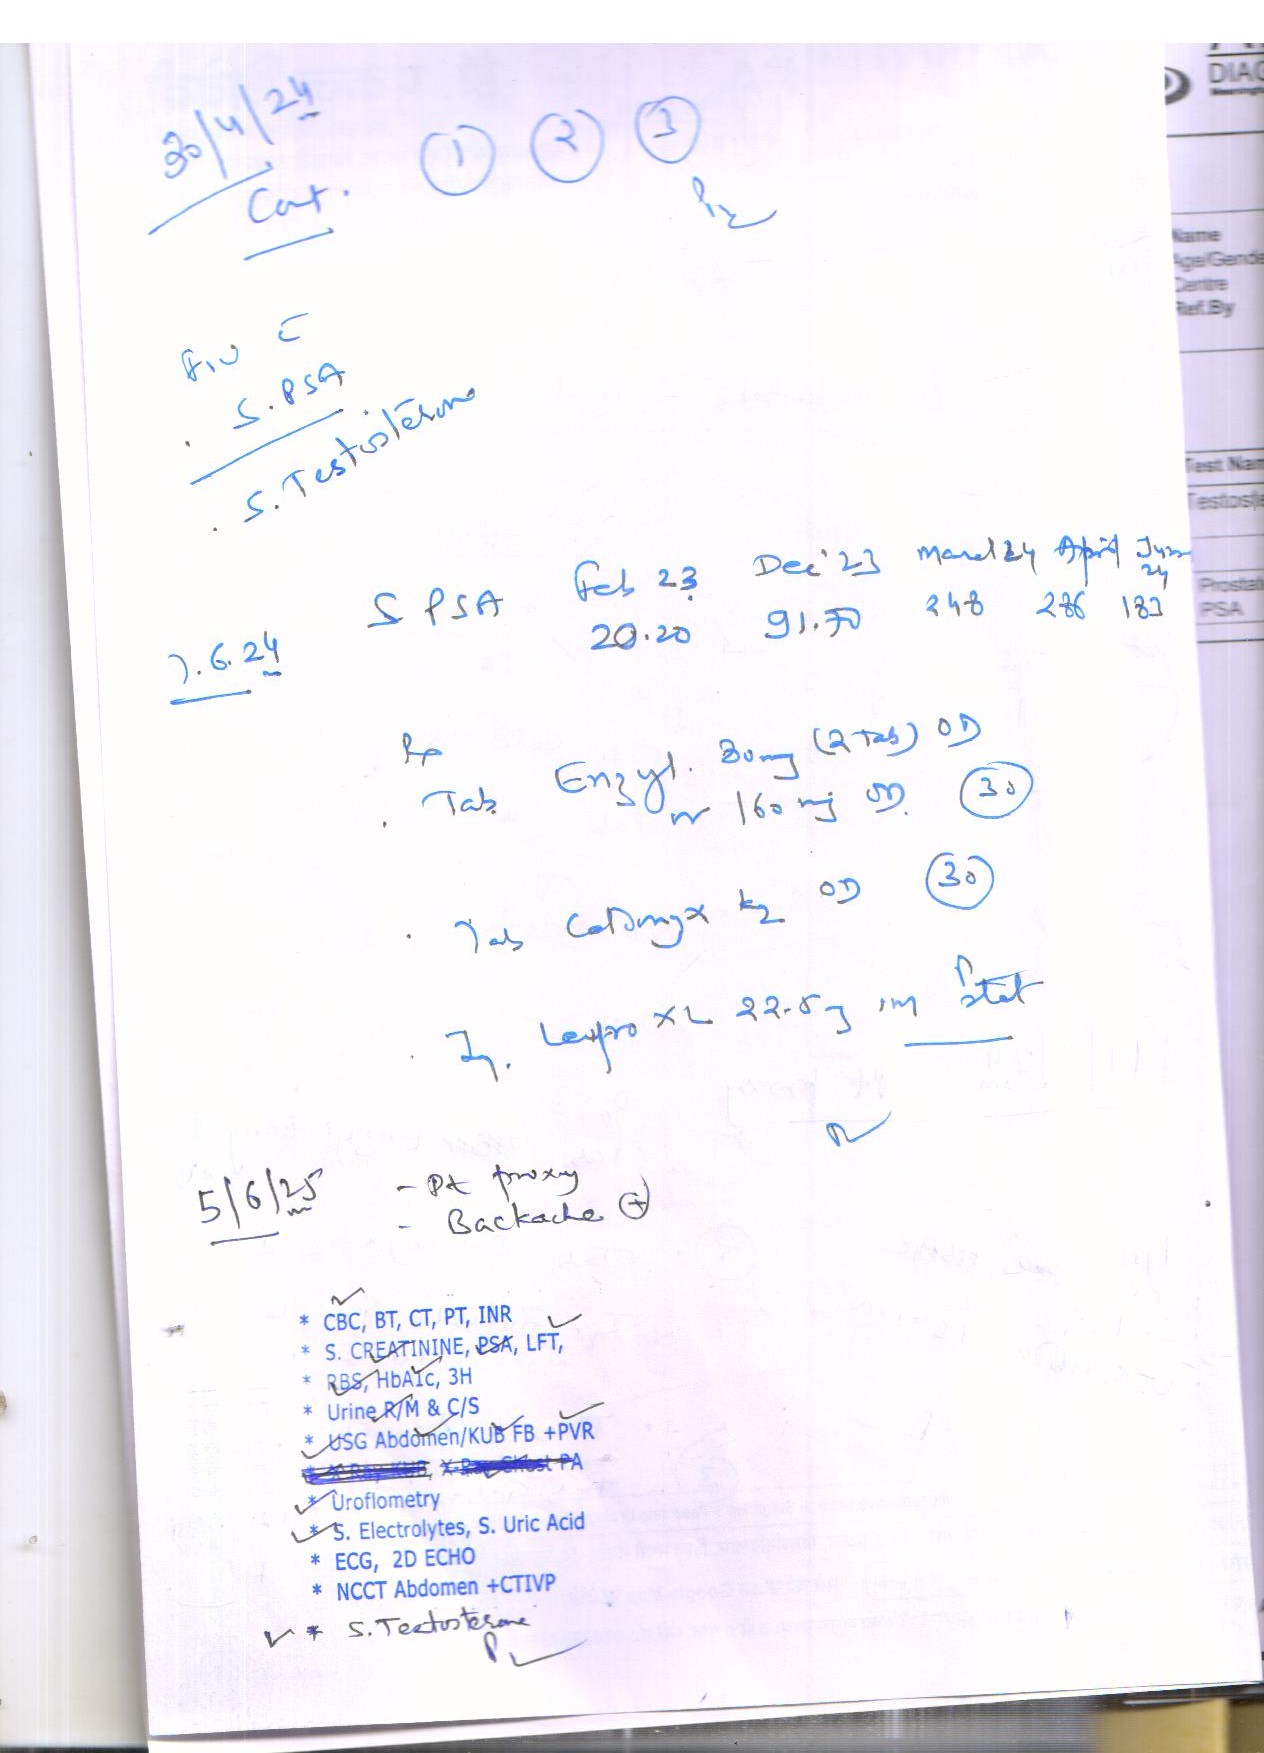 30/4/24
Cont. ① ② ③
F/U c
. S. PSA
. S. Testosterone
7.6.24
S PSA Feb 23 Dec'23 March 24 April June 24
20.20 91.70 248 286 183
Rx
. Tab (2 Tab) OD
160 mg OD. (30)
. Tab OD (30)
. Inj. Leupro XL 22.5 IM stat
5/6/25 - Pt proxy
- Backache (+)
* CBC, BT, CT, PT, INR
* S. CREATININE, PSA, LFT,
* RBS, HbA1c, 3H
* Urine R/M & C/S
* USG Abdomen/KUB FB +PVR
* X-Ray KUB, X-Ray Chest PA
* Uroflometry
* S. Electrolytes, S. Uric Acid
* ECG, 2D ECHO
* NCCT Abdomen +CTIVP
* S. Testosterone
DIAG
Name
Age/Gende
Centre
Ref.By
Test Nam
Testoste
Prostat
PSA